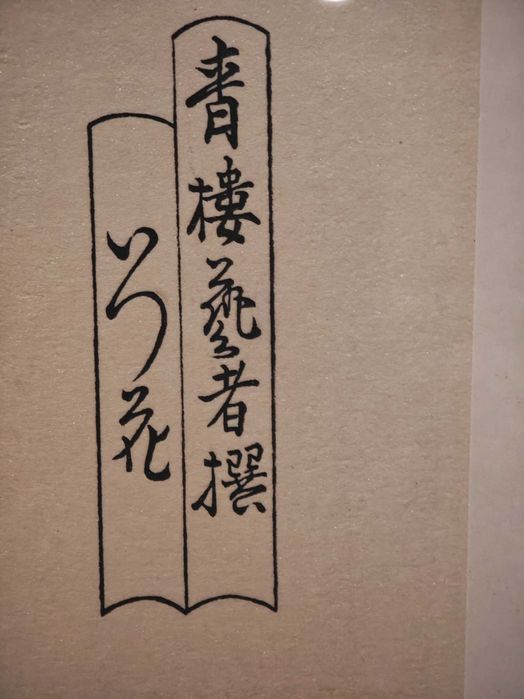 青樓藝者撰
いつ花